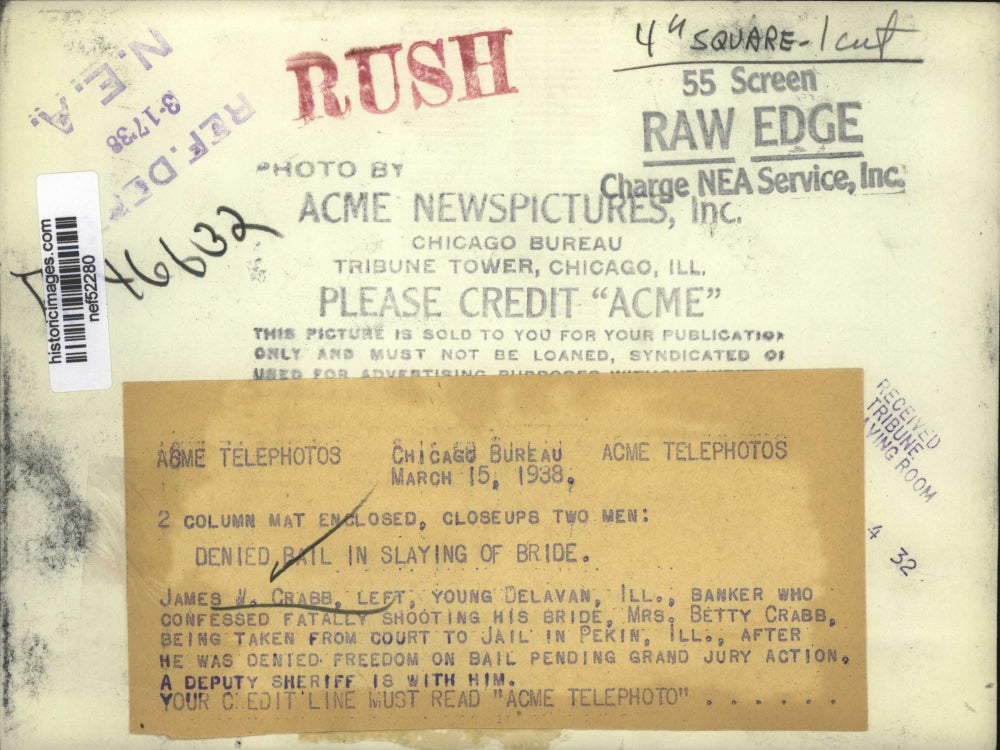 RUSH
4" SQUARE - 1 cut
55 Screen
RAW EDGE
Charge NEA Service, Inc.
N.E.A.
3-17'38
REF. DEPT
46632
historicimages.com
nef52280
PHOTO BY
ACME NEWSPICTURES, Inc.
CHICAGO BUREAU
TRIBUNE TOWER, CHICAGO, ILL.
PLEASE CREDIT "ACME"
THIS PICTURE IS SOLD TO YOU FOR YOUR PUBLICATION
ONLY AND MUST NOT BE LOANED, SYNDICATED OR
USED FOR ADVERTISING PURPOSES WITHOUT
RECEIVED
TRIBUNE
AVING ROOM
4 32
ACME TELEPHOTOS CHICAGO BUREAU ACME TELEPHOTOS
MARCH 15, 1938,
2 COLUMN MAT ENCLOSED, CLOSEUPS TWO MEN:
DENIED BAIL IN SLAYING OF BRIDE.
JAMES W. CRABB, LEFT, YOUNG DELAVAN, ILL., BANKER WHO
CONFESSED FATALLY SHOOTING HIS BRIDE, MRS. BETTY CRABB,
BEING TAKEN FROM COURT TO JAIL IN PEKIN, ILL., AFTER
HE WAS DENIED FREEDOM ON BAIL PENDING GRAND JURY ACTION,
A DEPUTY SHERIFF IS WITH HIM.
YOUR CREDIT LINE MUST READ "ACME TELEPHOTO" . . . . . .